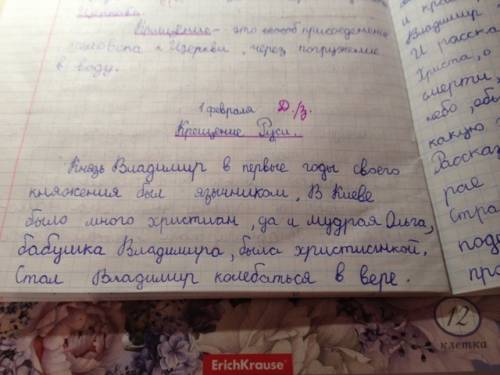 Крещение - это способ присоединения
человека к Церкви, через погружение
в воду.
1 февраля Д./з.
Крещение Руси.
Князь Владимир в первые годы своего
княжения был язычником, В Киеве
было много христиан, да и мудрая Ольга,
бабушка Владимира, была христианкой.
Стал Владимир колебаться в вере.
и кра
Владимир
И расска
Христа, о
смерти,
небо, обы
какую
Рассказ
рае
Стра
подв
про
12
клетка
ErichKrause